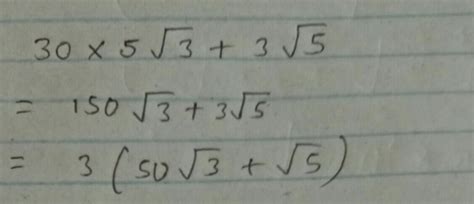 30 × 5√3 + 3√5
= 150√3 + 3√5
= 3(50√3 + √5)